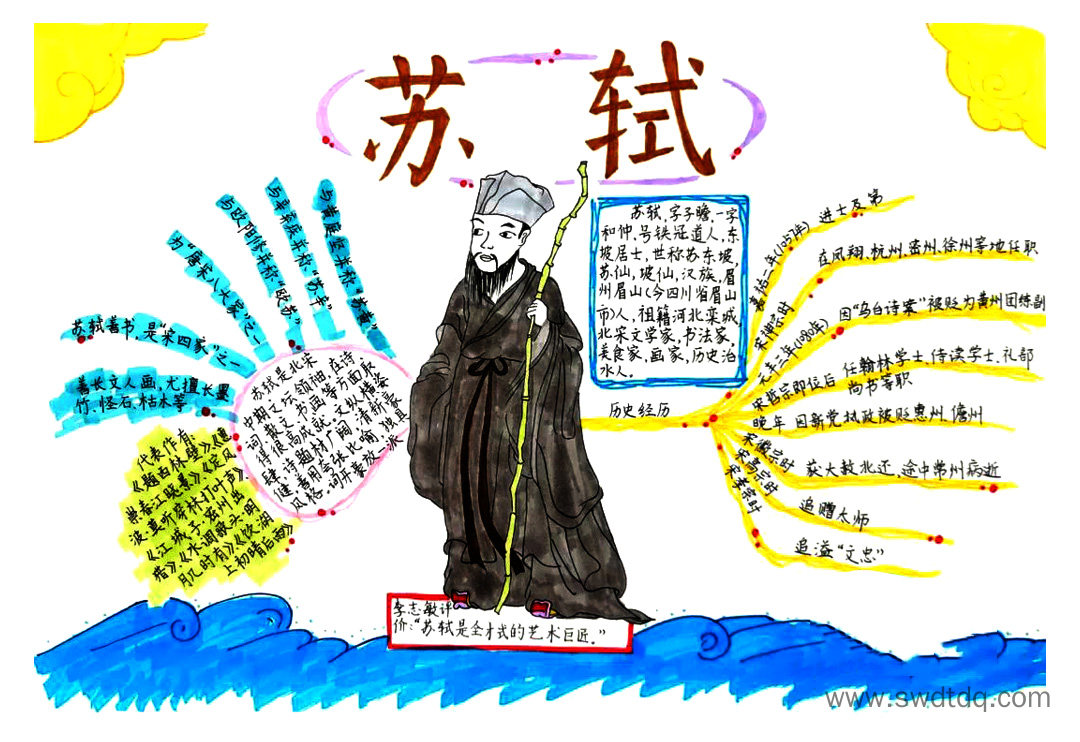 苏轼
苏轼,字子瞻,一字
和仲,号铁冠道人,东
坡居士,世称苏东坡,
苏仙,坡仙,汉族,眉
州眉山(今四川省眉山
市)人,祖籍河北栾城,
北宋文学家,书法家,
美食家,画家,历史治
水人。
与黄庭坚并称"苏黄"
与辛弃疾并称"苏辛"
与欧阳修并称"欧苏"
为"唐宋八大家"之一
苏轼善书,是"宋四家"之一
善长文人画,尤擅长墨
竹、怪石、枯木等
苏轼是北宋
中期文坛领袖,在诗、
词、散文、书画等方面取
得很高成就。文纵横恣
肆,诗题材广阔,清新豪
健,善用夸张比喻,独具
风格。词开豪放一派
代表作有:
《题西林壁》《惠
崇春江晚景》《定风
波莫听穿林打叶声》
《江城子·密州出
猎》《水调歌头·明
月几时有》《饮湖
上初晴后雨》
历史经历
嘉祐二年(1057年) 进士及第
宋神宗时 在凤翔、杭州、密州、徐州等地任职
元丰三年(1080年) 因"乌台诗案"被贬为黄州团练副
宋哲宗即位后 任翰林学士、侍读学士、礼部
尚书等职
晚年 因新党执政被贬惠州、儋州
宋徽宗时 获大赦北还,途中常州病逝
宋高宗时 追赠太师
宋孝宗时 追溢"文忠"
李志敏评
价:"苏轼是全才式的艺术巨匠。"
www.swdtdq.com